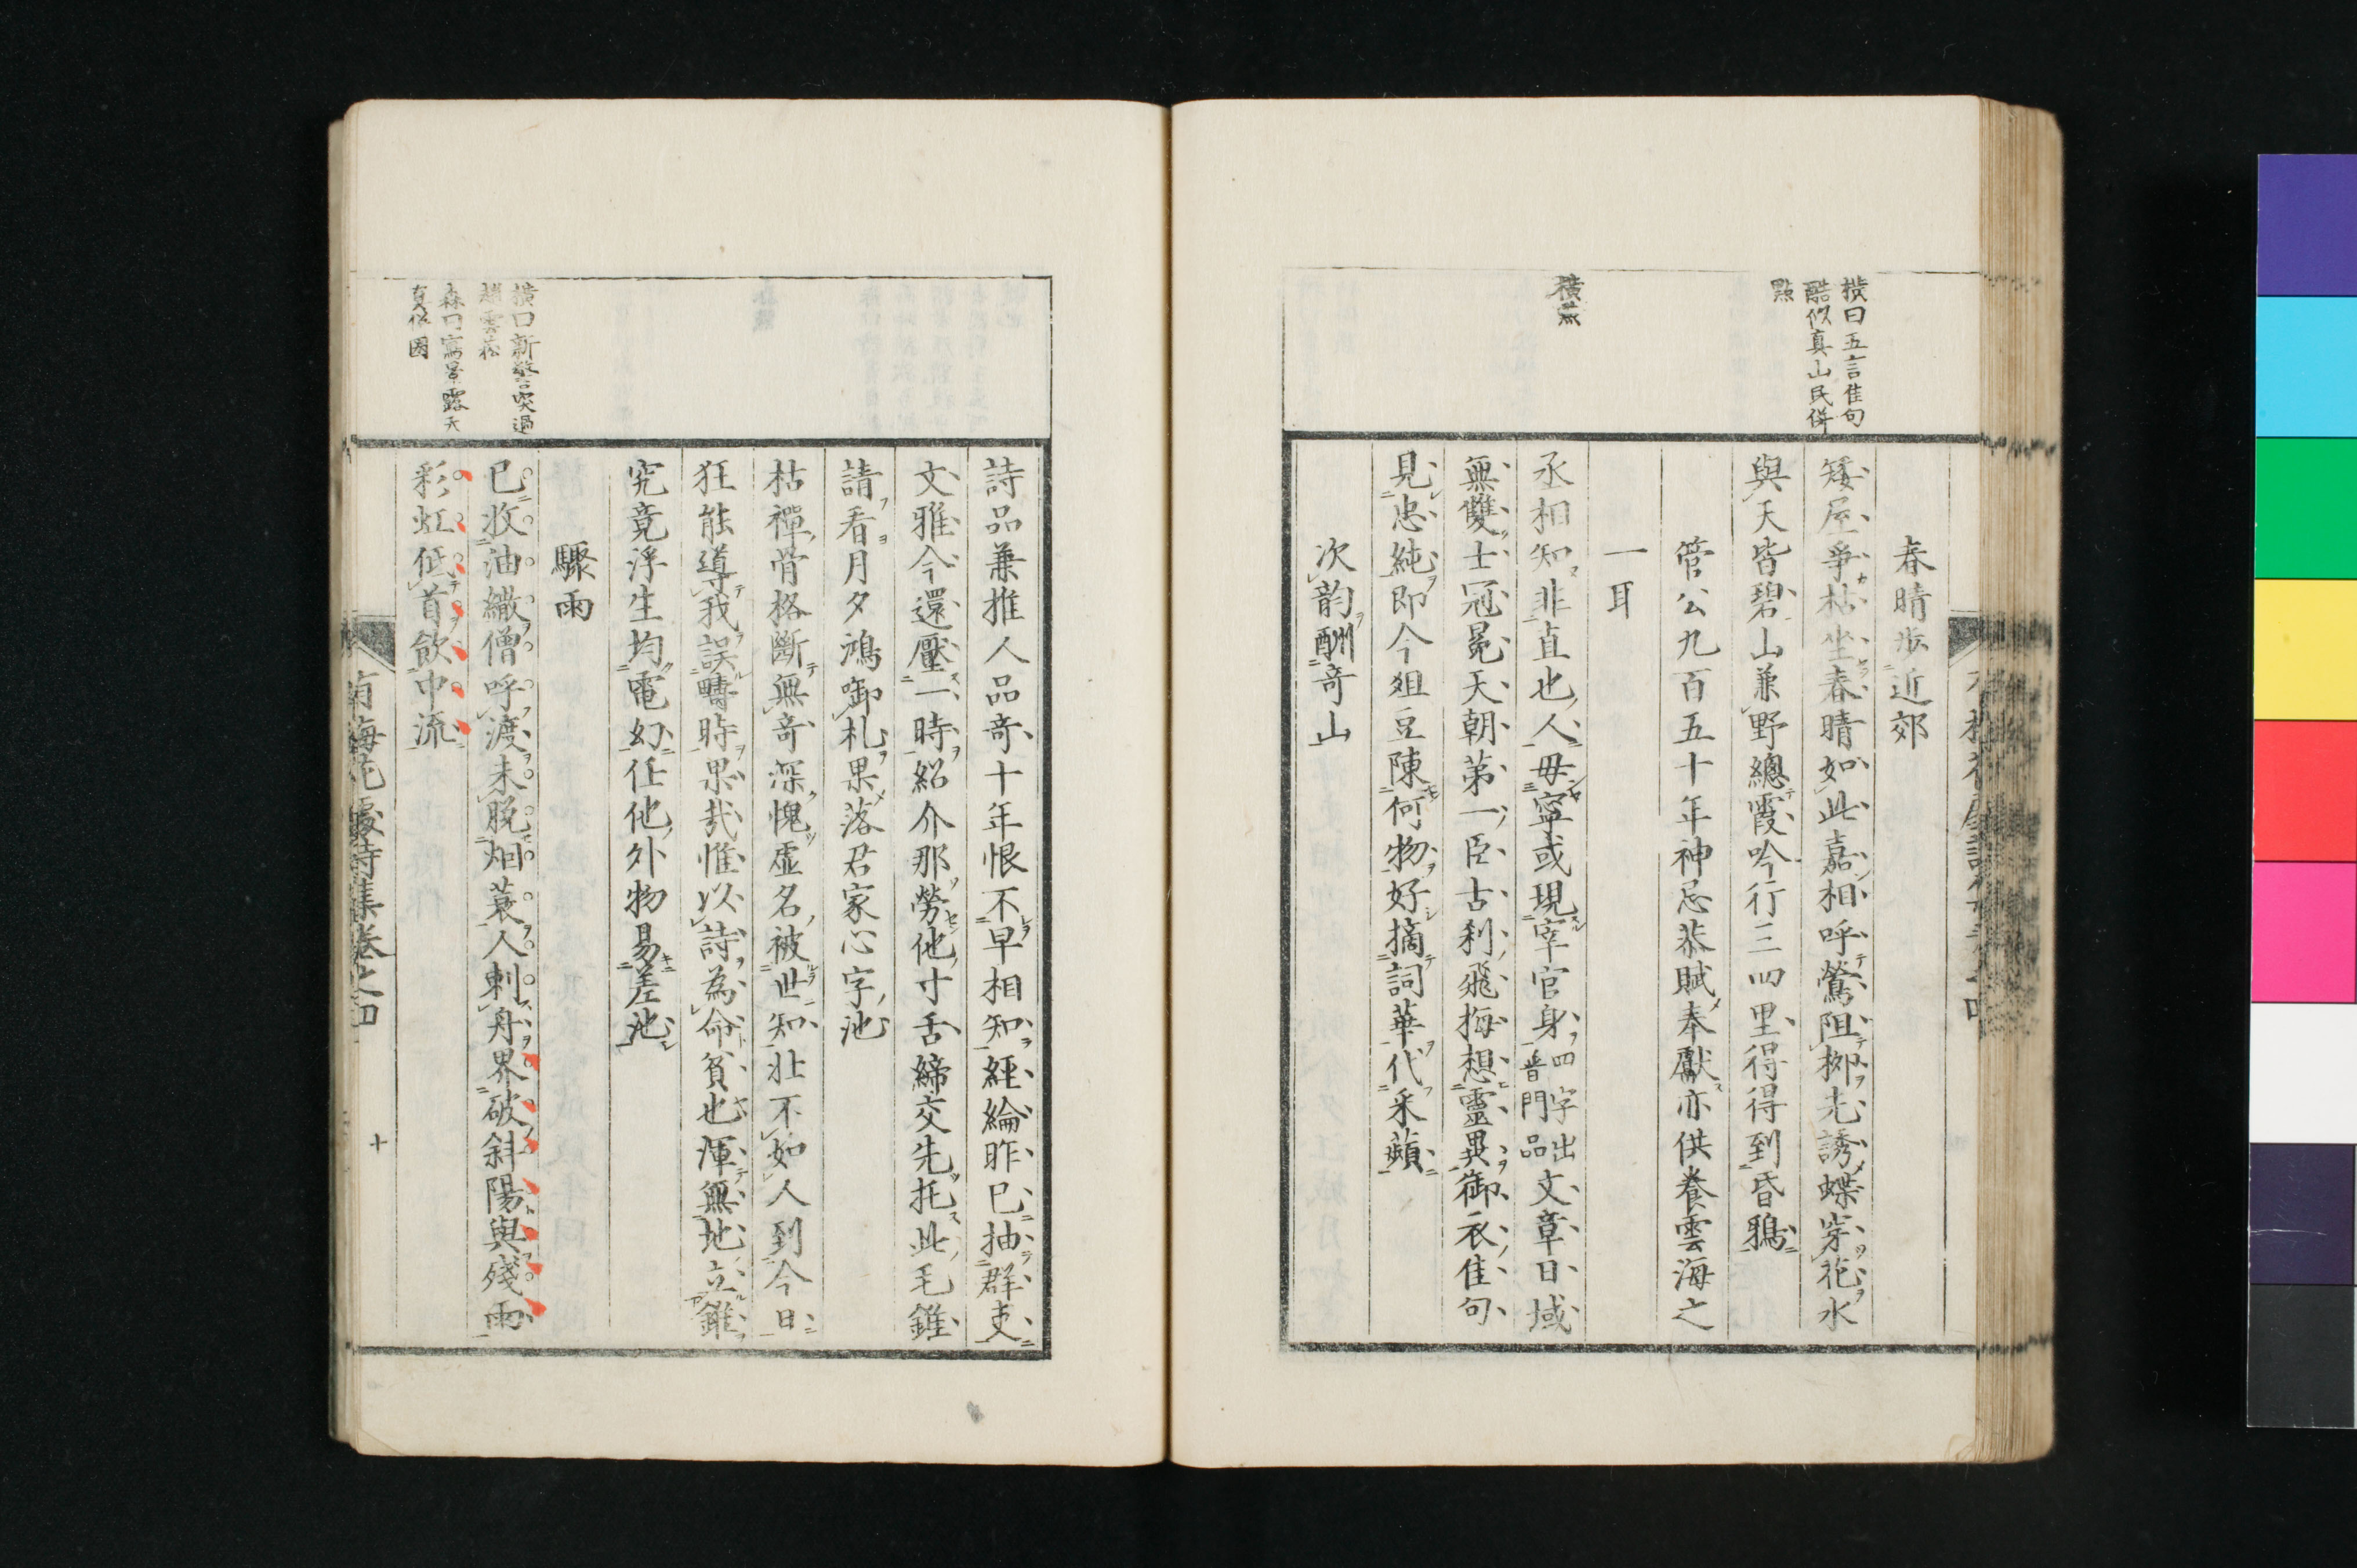 横曰五言佳句
酷似真山民併
點
春晴步近郊
矮屋爭枯坐春晴如此嘉相呼鶯阻柳先誘蝶穿花水
與天皆碧山兼野總霞吟行三四里得得到昏鴉
菅公九百五十年神忌恭賦奉獻亦供養雲海之
一耳
丞相知非直也人毋寧或現宰官身四字出普門品文章日域
無雙士冠冕天朝第一臣古刹飛梅想靈異御衣佳句
見忠純即今俎豆陳何物好摘詞華代采蘋
次韵酬奇山
詩品兼推人品奇十年恨不早相知經綸昨已抽群吏
文雅今還壓一時紹介那勞他寸舌締交先托此毛錐
請看月夕鴻御札果落君家心字池
枯禪骨格斷無奇深愧虛名被世知壯不如人到今日
狂能導我誤疇時果哉惟以詩為命貧也渾無地立錐
究竟浮生均電幻任他外物易差池
横曰新警突過
趙雲菘
森曰寫景露天
真作圖
驟雨
已收油繖僧呼渡未脫烟蓑人刺舟界破斜陽與殘雨
彩虹低首飲中流
有梅花處詩集卷之四
十